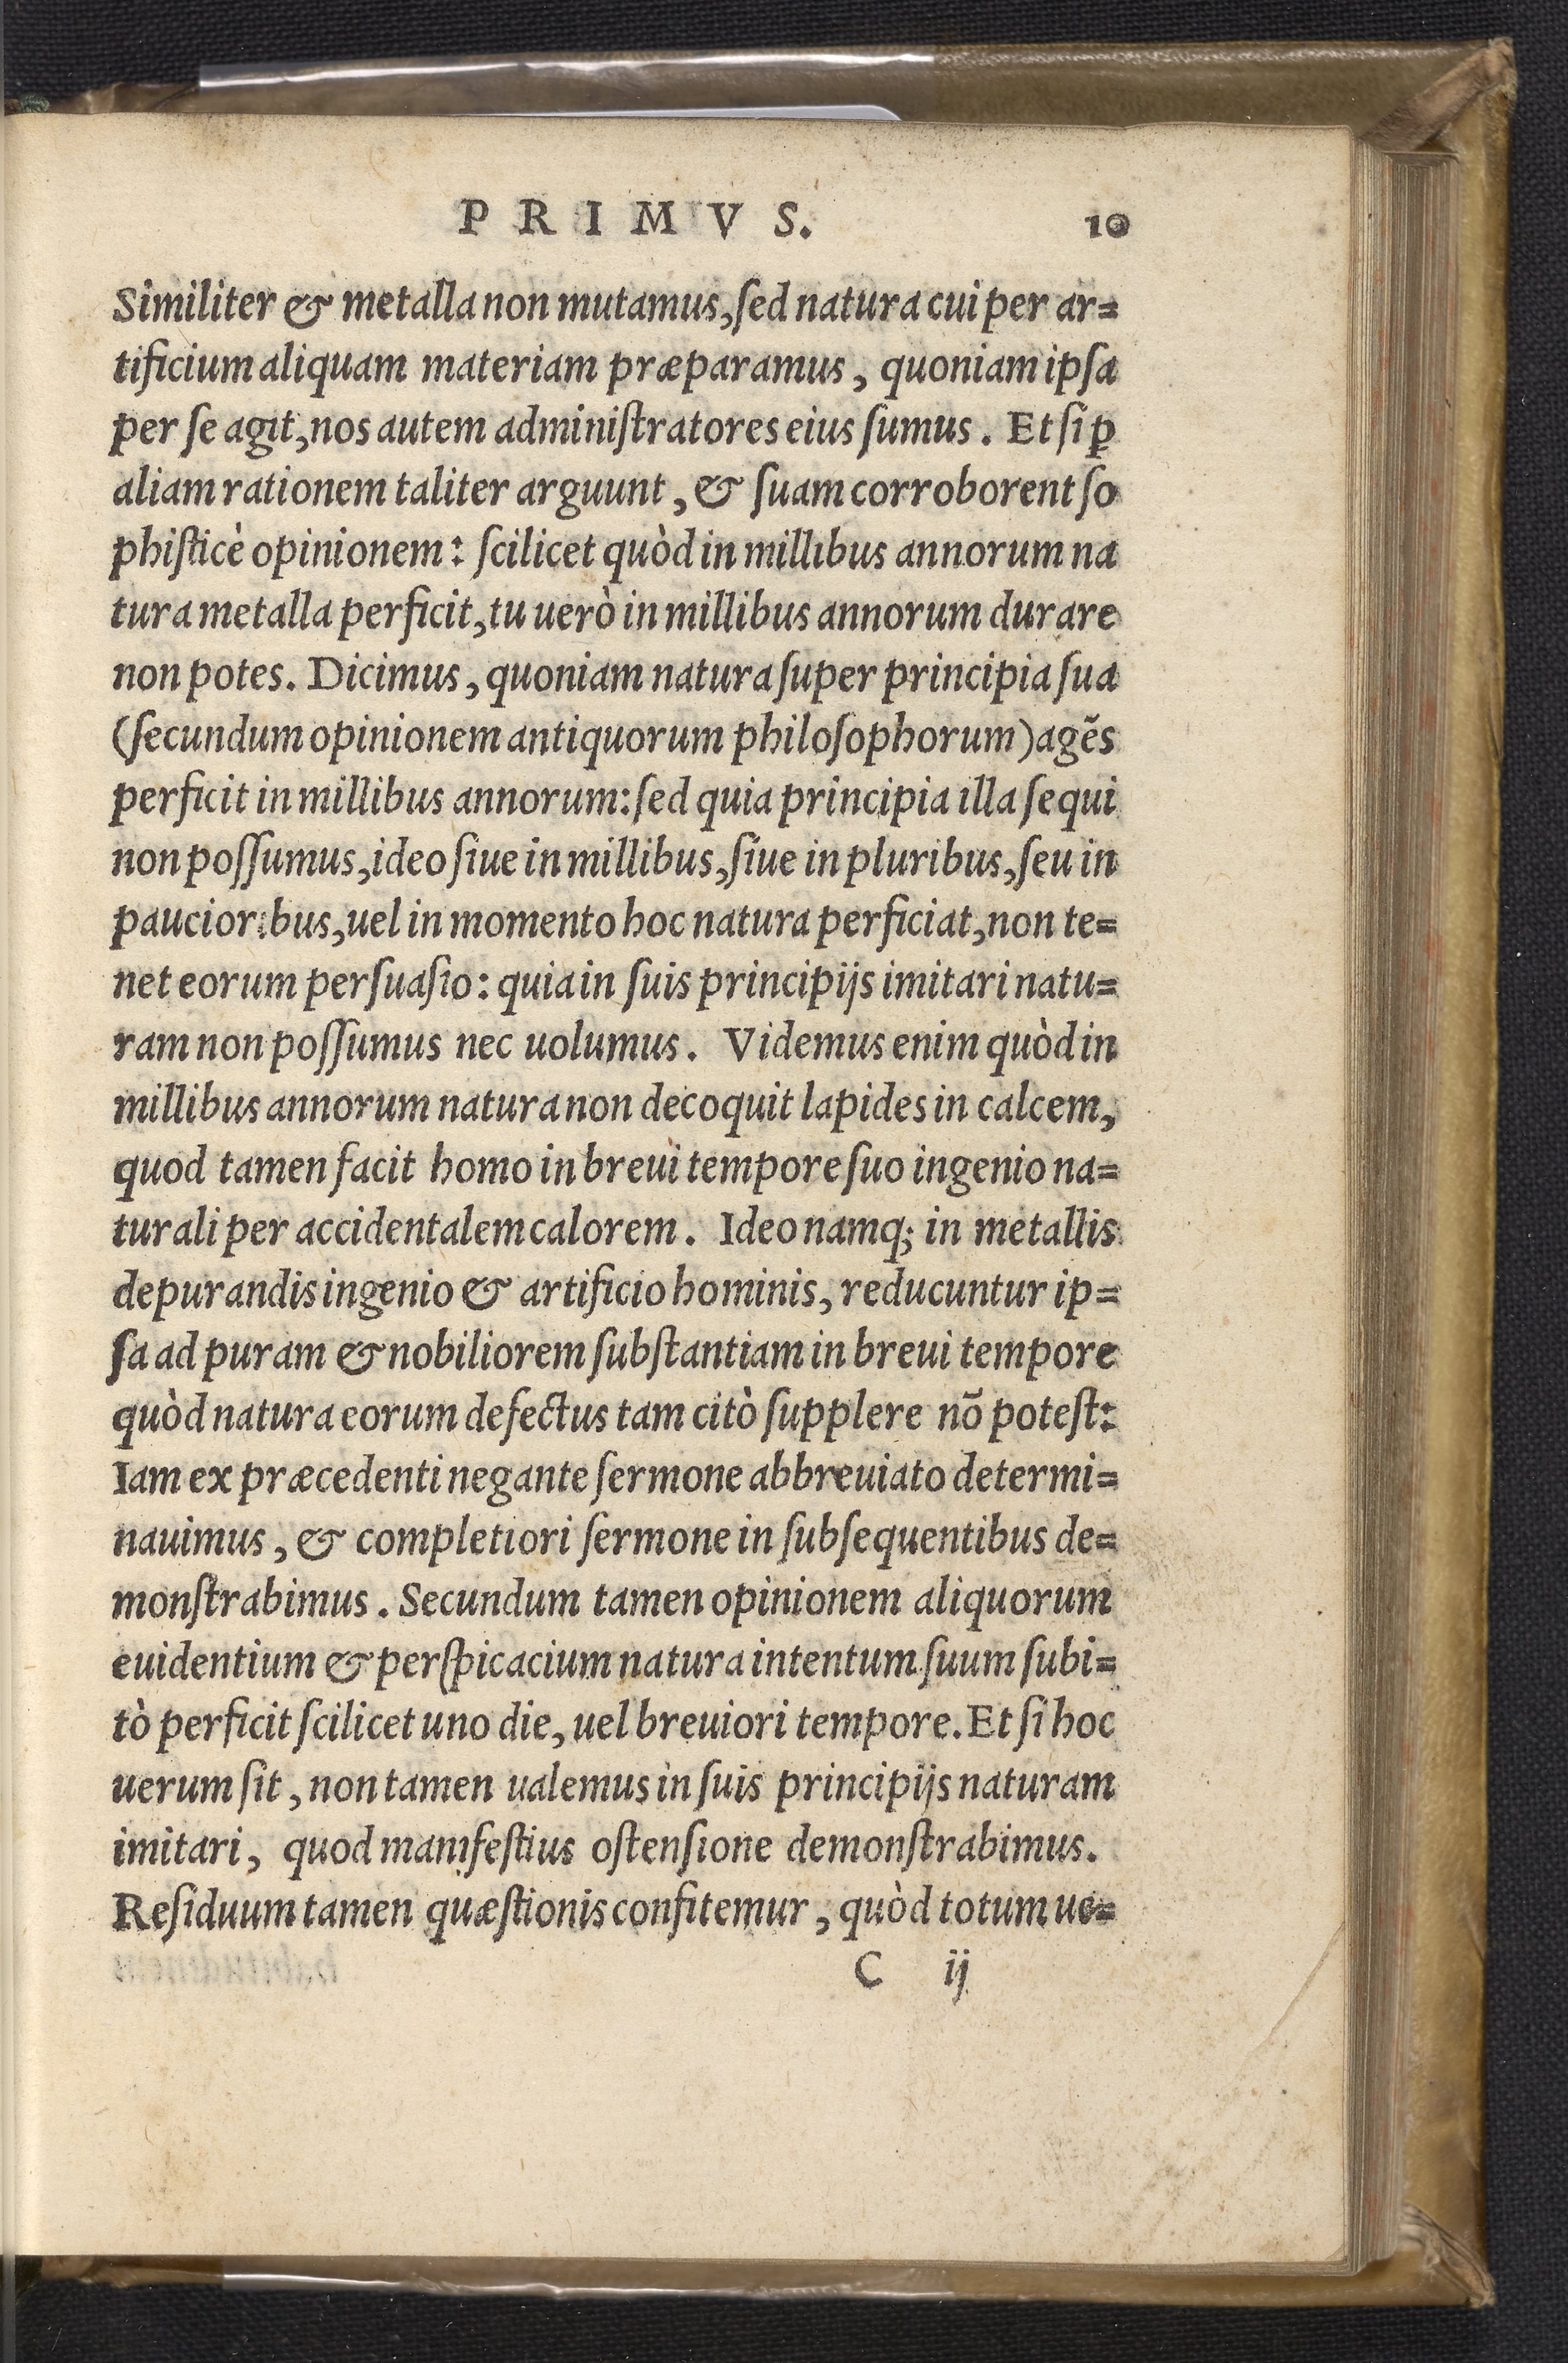 PRIMVS. 10
Similiter & metalla non mutamus, ſed natura cui per ar=
tificium aliquam materiam præparamus, quoniam ipſa
per ſe agit, nos autem adminiſtratores eius ſumus. Et ſi ꝑ
aliam rationem taliter arguunt, & ſuam corroborent ſo
phiſticè opinionem: ſcilicet quòd in millibus annorum na
tura metalla perficit, tu uerò in millibus annorum durare
non potes. Dicimus, quoniam natura ſuper principia ſua
(ſecundum opinionem antiquorum philoſophorum) agẽs
perficit in millibus annorum: ſed quia principia illa ſequi
non poſſumus, ideo ſiue in millibus, ſiue in pluribus, ſeu in
paucioribus, uel in momento hoc natura perficiat, non te=
net eorum perſuaſio: quia in ſuis principijs imitari natu=
ram non poſſumus nec uolumus. Videmus enim quòd in
millibus annorum natura non decoquit lapides in calcem,
quod tamen facit homo in breui tempore ſuo ingenio na=
turali per accidentalem calorem. Ideo namq; in metallis
depurandis ingenio & artificio hominis, reducuntur ip=
ſa ad puram & nobiliorem ſubſtantiam in breui tempore
quòd natura eorum defectus tam citò ſupplere nõ poteſt:
Iam ex præcedenti negante ſermone abbreuiato determi=
nauimus, & completiori ſermone in ſubſequentibus de=
monſtrabimus. Secundum tamen opinionem aliquorum
euidentium & perſpicacium natura intentum ſuum ſubi=
tò perficit ſcilicet uno die, uel breuiori tempore. Et ſi hoc
uerum ſit, non tamen ualemus in ſuis principijs naturam
imitari, quod manifeſtius oſtenſione demonſtrabimus.
Reſiduum tamen quæſtionis confitemur, quòd totum ue=
C ij